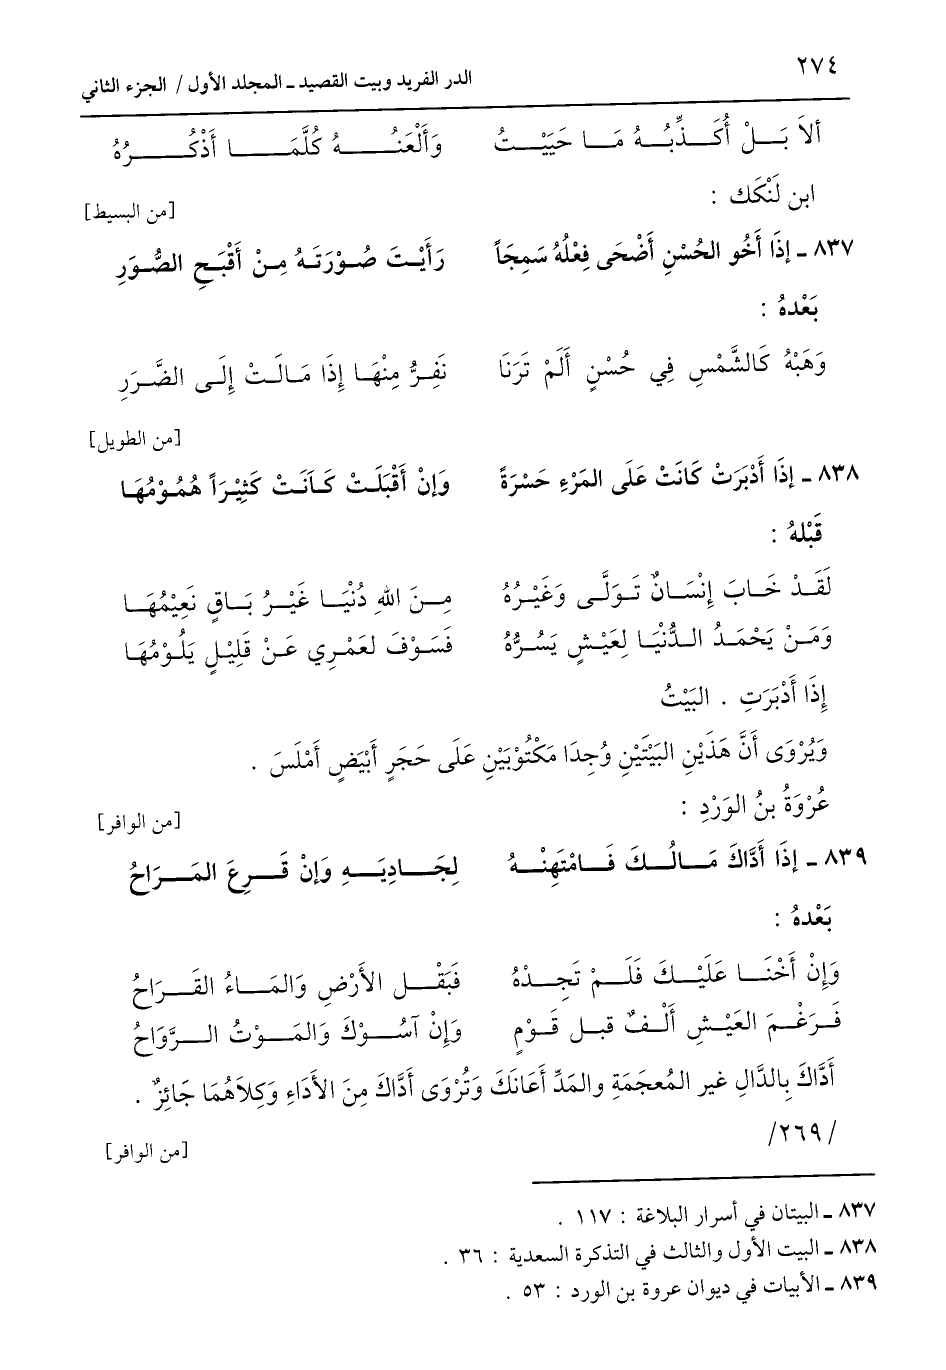 ٢٧٤
الدر الفريد وبيت القصيد ـ المجلد الأول / الجزء الثاني
ألاَ بَـلْ أُكَـذِّبُـهُ مَـا حَيَيْـتُ وَأَلْعَنُـهُ كُلَّمَـا أَذْكُـرُهُ
ابن لَنْكَك :
[من البسيط]
٨٣٧ ـ إذَا أَخُو الحُسْنِ أَضْحَى فِعْلُهُ سَمِجَاً رَأَيْـتَ صُـوْرَتَـهُ مِـنْ أَقْبَـحِ الصُّـوَرِ
بَعْدهُ :
وَهَبْهُ كَالشَّمْسِ فِي حُسْنٍ أَلَمْ تَرَنَا نَفِـرُّ مِنْهَـا إِذَا مَـالَـتْ إِلَـى الضَّـرَرِ
[من الطويل]
٨٣٨ ـ إذَا أَدْبَرَتْ كَانَتْ عَلَى المَرْءِ حَسْرَةً وَإنْ أَقْبَلَـتْ كَـانَـتْ كَثِيْـرَاً هُمُـوْمُهَـا
قَبْلهُ :
لَقَـدْ خَـابَ إِنْسَـانٌ تَـوَلَّـى وَغَيْـرُهُ مِـنَ اللهِ دُنْيَـا غَيْـرُ بَـاقٍ نَعِيْمُهَـا
وَمَـنْ يَحْمَـدُ الـدُّنْيَـا لِعَيْـشٍ يَسُـرُّهُ فَسَـوْفَ لَعَمْـرِي عَـنْ قَلِيْـلٍ يَلُـوْمُهَـا
إِذَا أَدْبَرَتِ . البَيْتُ
وَيُرْوَى أَنَّ هَذَيْنِ البَيْتَيْنِ وُجِدَا مَكْتُوْبَيْنِ عَلَى حَجَرٍ أَبْيَضٍ أَمْلَسَ .
عُرْوَةُ بنُ الوَرْدِ :
[من الوافر]
٨٣٩ ـ إذَا أَدَّاكَ مَـالُـكَ فَـامْتَهِنْـهُ لِجَـادِيَـهِ وَإنْ قَـرِعَ المَـرَاحُ
بَعْدهُ :
وَإنْ أَخْنَـا عَلَيْـكَ فَلَـمْ تَجِـدْهُ فَبَقْـل الأَرْضِ وَالمَـاءُ القَـرَاحُ
فَـرَغْـمَ العَيْـشِ أَلْـفٌ قبـل قَـوْمٍ وَإنْ آسُـوْكَ وَالمَـوْتُ الـرَّوَاحُ
أَدَّاكَ بِالدَّالِ غير المُعجَمَةِ والمَدِّ أَعَانَكَ وَتُرْوَى أَدَّاكَ مِنَ الأَدَاءِ وَكِلاَهُمَا جَائِزٌ .
/٢٦٩/
[من الوافر]
٨٣٧ ـ البيتان في أسرار البلاغة : ١١٧ .
٨٣٨ ـ البيت الأول والثالث في التذكرة السعدية : ٣٦ .
٨٣٩ ـ الأبيات في ديوان عروة بن الورد : ٥٣ .